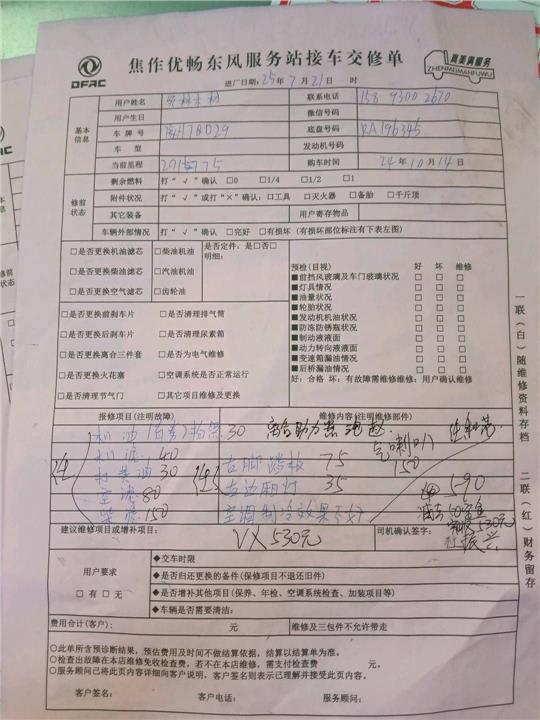 DFAC
焦作优畅东风服务站接车交修单
真美满服务
ZHENMEIMANFUWU
进厂日期：25年7月21日 时
基本信息
用户姓名
联系电话 158 9300 2670
用户生日
微信号码
车牌号
底盘号码 RA196345
车型
发动机号码
当前里程
购车时间 24年10月14日
修前状态
剩余燃料 打“√”确认 □0 □1/4 □1/2 □1
附件状况 打“√”或打“×”确认：□工具 □灭火器 □备胎 □千斤顶
其它装备
用户寄存物品
车辆外部情况 打“√”确认 □完好 □有损坏 (有损坏部位标注有下表左图)
□是否更换机油滤芯 □柴油机油
□是否更换柴油滤芯 □汽油机油
□是否更换空气滤芯 □齿轮油
是否定件：是□否□
明细：
□是否更换前刹车片 □是否清理排气筒
□是否更换后刹车片 □是否清理尿素箱
□是否更换离合三件套 □是否为电气维修
□是否更换火花塞 □空调系统是否正常运行
□是否清理节气门 □其它项目维修及更换
预检(目视) 好 坏 维修
■前挡风玻璃及车门玻璃状况 □ □ □
■灯具情况 □ □ □
■油量状况 □ □ □
■轮胎状况 □ □ □
■发动机机油状况 □ □ □
■防冻防锈瓶状况 □ □ □
■制动液液面 □ □ □
■动力转向液液面 □ □ □
■变速箱漏油情况 □ □ □
■后桥漏油情况 □ □ □
好：合格 坏：有故障需维修维修：用户确认维修
报修项目(注明故障)
维修内容(注明维修部件)
机油 30
机滤 40
30
空滤 80
柴滤 150
离合助力泵
气喇叭 150
右脚踏板 75
右边厢灯 35
空调制冷效果不好
590
建议维修项目或增补项目：
VX 530元
司机确认签字：
用户要求
□有 □无
◆交车时限
◆是否归还更换的备件(保修项目不退还旧件)
◆是否增补其他项目(保养、年检、空调系统检查、加装项目等)
◆车辆是否需要清洁：
费用合计(客户)： 元
维修及三包件不允许带走
○此单所含预诊断结果，预估费用及时间不做结算依据，结算以结算单为准。
○检查出故障在本店维修免收检查费，若不在本店维修，需支付检查费 元。
○服务顾问已将此页内容详细向客户说明，客户签名则表示已理解并接受此页内容。
客户签名： 客户电话： 服务顾问：
一联(白)随维修资料存档
二联(红)财务留存